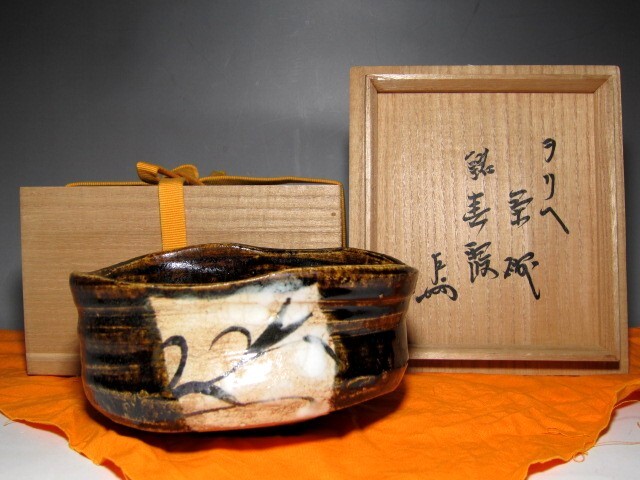 ヲリベ
茶碗
銘 春霞